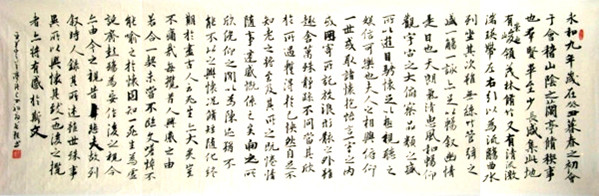 永和九年歲在癸丑暮春之初會
于會稽山陰之蘭亭脩禊事
也羣賢畢至少長咸集此地
有崇山峻領茂林脩竹又有清流激
湍暎帶左右引以為流觴曲水
列坐其次雖無絲竹管弦之
盛一觴一詠亦足以暢敘幽情
是日也天朗氣清惠風和暢仰
觀宇宙之大俯察品類之盛
所以遊目騁懷足以極視聽之
娛信可樂也夫人之相與俯仰
一世或取諸懷抱悟言一室之內
或因寄所託放浪形骸之外雖
趣舍萬殊靜躁不同當其欣
於所遇蹔得於己怏然自足不
知老之將至及其所之既惓情
隨事遷感慨係之矣向之所
欣俛仰之閒以為陳迹猶不
能不以之興懷況脩短隨化終
期於盡古人云死生亦大矣豈
不痛哉每攬昔人興感之由
若合一契未嘗不臨文嗟悼不
能喻之於懷固知死生為虛
誕齊彭殤為妄作後之視今
亦由今之視昔悲夫故列
敘時人錄其所述雖世殊事
異所以興懷其致一也後之攬
者亦將有感於斯文